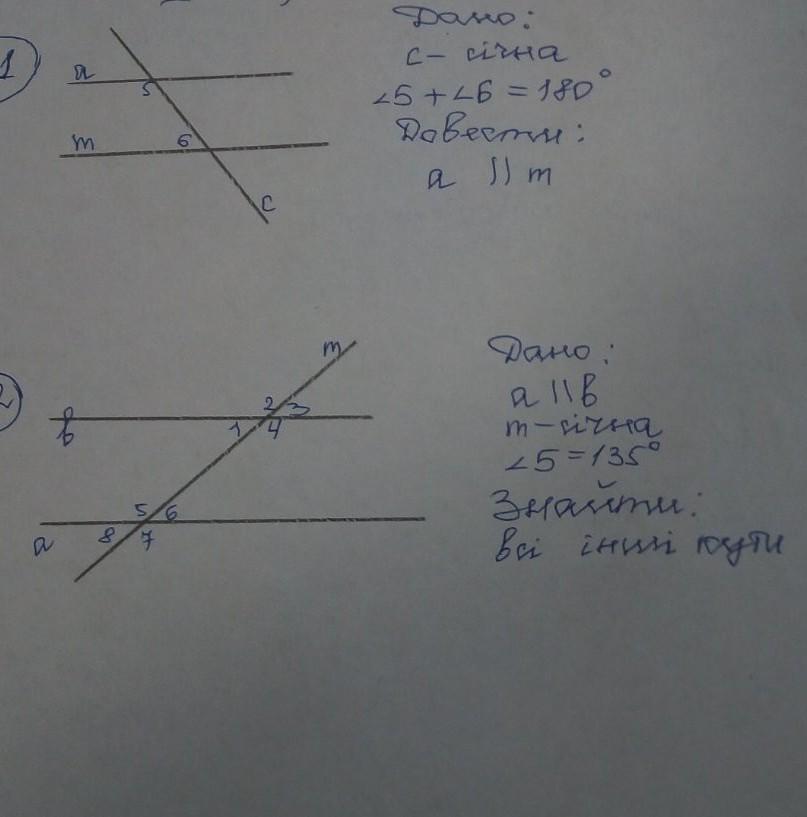 1
a
5
m
6
c
Дано:
c - січна
∠5 + ∠6 = 180°
Довести:
a || m
2
m
b
2 3
1 4
5 6
8 7
a
Дано:
a || b
m - січна
∠5 = 135°
Знайти:
всі інші кути